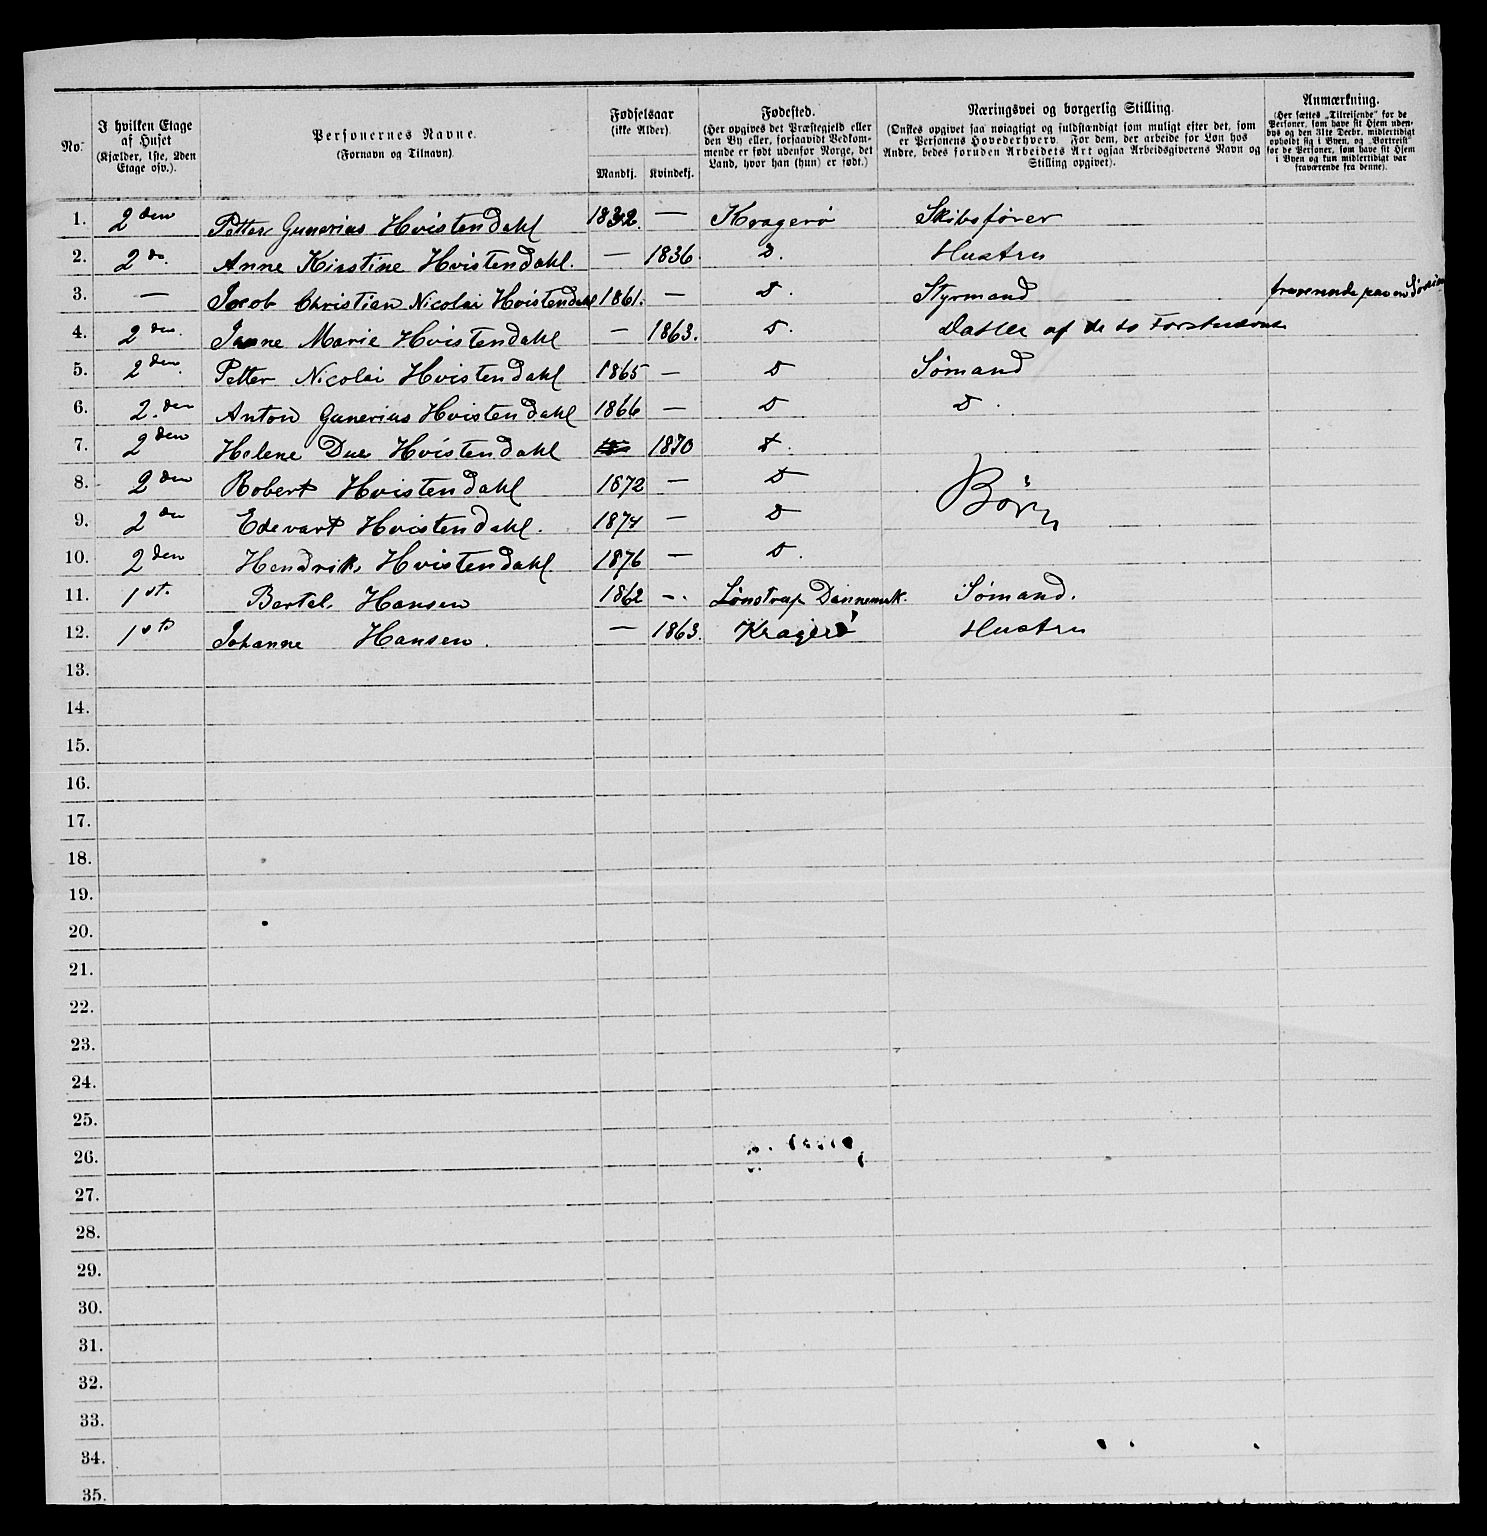 No.
I hvilken Etage af Huset (Kjælder, 1ste, 2den Etage osv.).
Personernes Navne. (Fornavn og Tilnavn).
Fødselsaar (ikke Alder).
Mandkj. Kvindekj.
Fødested. (Her opgives det Præstegjeld eller den By eller, forsaavidt Vedkommende er født udenfor Norge, det Land, hvor han (hun) er født.)
Næringsvei og borgerlig Stilling. (Ønskes opgivet saa nøiagtigt og fuldstændigt som muligt efter det, som er Personens Hovederhverv. For dem, der arbeide for Løn hos Andre, bedes foruden Arbeidets Art ogsaa Arbeidsgiverens Navn og Stilling opgivet).
Anmærkning. (Her sættes „Tilreisende" for de Personer, som have sit Hjem udenbys og den 31te Decbr. midlertidigt opholdt sig i Byen, og „Bortreist" for de Personer, som have sit Hjem i Byen og kun midlertidigt var fraværende fra denne).
1. 2den Petter Gunerius Hvistendahl 1832. — Kragerø Skibsfører
2. 2dn. Anne Kirstine Hvistendahl. — 1836. D. Hustru
3. — Jacob Christian Nicolai Hvistendahl 1861. — D. Styrmand
4. 2den. Janne Marie Hvistendahl — 1863. D. Datter af de to
5. 2den. Petter Nicolai Hvistendahl 1865 — D Sømand
6. 2.den Anton Gunerius Hvistendahl 1866 — D D.
7. 2den Helene Due Hvistendahl 1870 D.
8. 2den Robert Hvistendahl 1872 — D Børn
9. 2den Edevart Hvistendahl. 1874 — D
10. 2den Hendrik Hvistendahl 1876 — D.
11. 1st. Bertel. Hansen 1862 —. Lønstrup Dannemark. Sømand.
12. 1ste Johanne Hansen. — 1863. Kragerø Hustru
13.
14.
15.
16.
17.
18.
19.
20.
21.
22.
23.
24.
25.
26.
27.
28.
29.
30.
31.
32.
33.
34.
35.